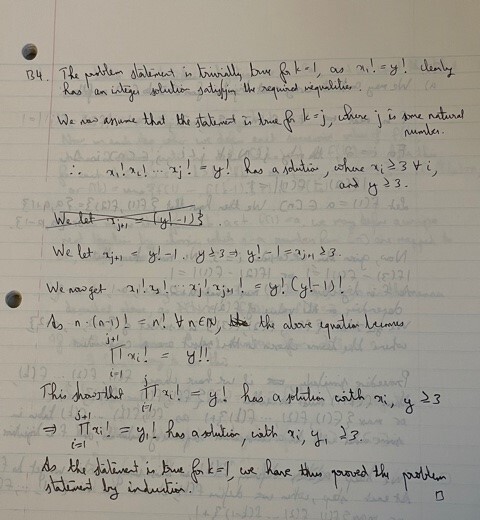 B4. The problem statement is trivially true for k=1, as x₁! = y! clearly
has an integer solution satisfying the required inequalities.
We now assume that the statement is true for k=j, where j is some natural
number.
∴ x₁! x₂! ... xⱼ! = y! has a solution, where xᵢ ≥ 3 ∀ i,
and y ≥ 3.
We let xⱼ₊₁ = (y!-1)
We let xⱼ₊₁ = y!-1. y ≥ 3 ⇒ y!-1 = xⱼ₊₁ ≥ 3.
We now get x₁! x₂! ... xⱼ! xⱼ₊₁! = y! (y!-1)!
As n·(n-1)! = n! ∀ n∈ℕ, the above equation becomes
∏ᵢ₌₁ʲ⁺¹ xᵢ! = y!!
This shows that ∏ᵢ₌₁ʲ xᵢ! = y! has a solution with xᵢ, y ≥ 3
⇒ ∏ᵢ₌₁ʲ⁺¹ xᵢ! = y₁! has a solution, with xᵢ, y₁ ≥ 3.
As the statement is true for k=1, we have thus proved the problem
statement by induction. □